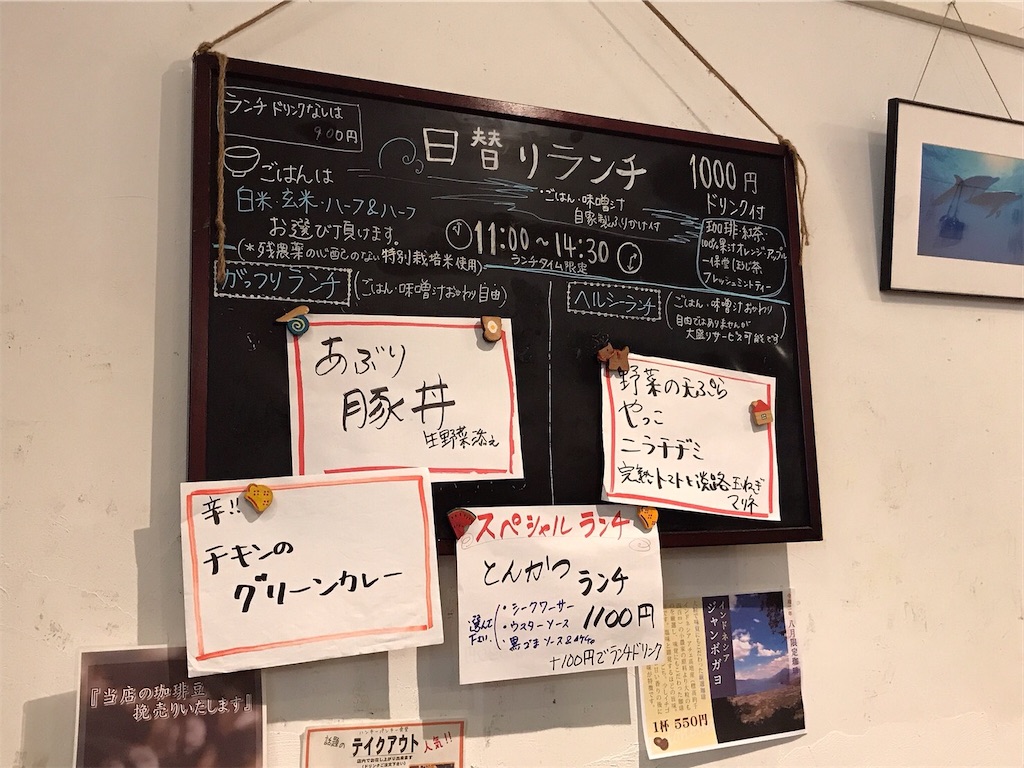 ランチドリンクなしは
900円
日替りランチ
1000円
ドリンク付
ごはんは
白米・玄米・ハーフ&ハーフ
お選び頂けます。
(*残農薬の心配のない特別栽培米使用)
・ごはん・味噌汁
自家製ふりかけ付
11:00~14:30
ランチタイム限定
珈琲・紅茶
100%果汁オレンジ・アップル
一保堂ほうじ茶
フレッシュミントティー
がっつりランチ
(ごはん・味噌汁おかわり自由)
ヘルシーランチ
(ごはん・味噌汁おかわり
自由ではありませんが
大盛りサービス可能です)
あぶり
豚丼
生野菜添え
野菜の天ぷら
やっこ
ニラチヂミ
完熟トマトと淡路玉ねぎ
マリネ
辛!!
チキンの
グリーンカレー
スペシャルランチ
とんかつ
ランチ
1100円
選んで
下さい
・シークワーサー
・ウスターソース
・黒ごまソース&
+100円でランチドリンク
『当店の珈琲豆
挽売りいたします』
ハンキーパンキー食堂
話題の
テイクアウト
人気!!
店内でお召し上がり出来ます
(ドリンクご注文下さい)
八月限定珈琲
インドネシア
ジャンボガヨ
1杯 550円